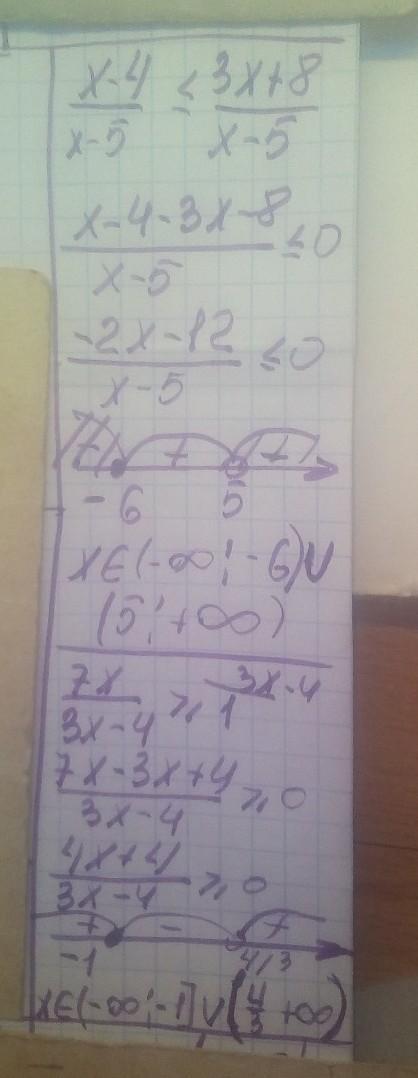 x-4/x-5 ≤ 3x+8/x-5
x-4-3x-8/x-5 ≤0
-2x-12/x-5 ≤0
+ +
-6 5
x∈(-∞;-6)∪
(5;+∞)
7x/3x-4 ≥ 1 3x-4
7x-3x+4/3x-4 ≥0
4x+4/3x-4 ≥0
+ - +
-1 4/3
x∈(-∞;-1]∪(4/3 +∞)